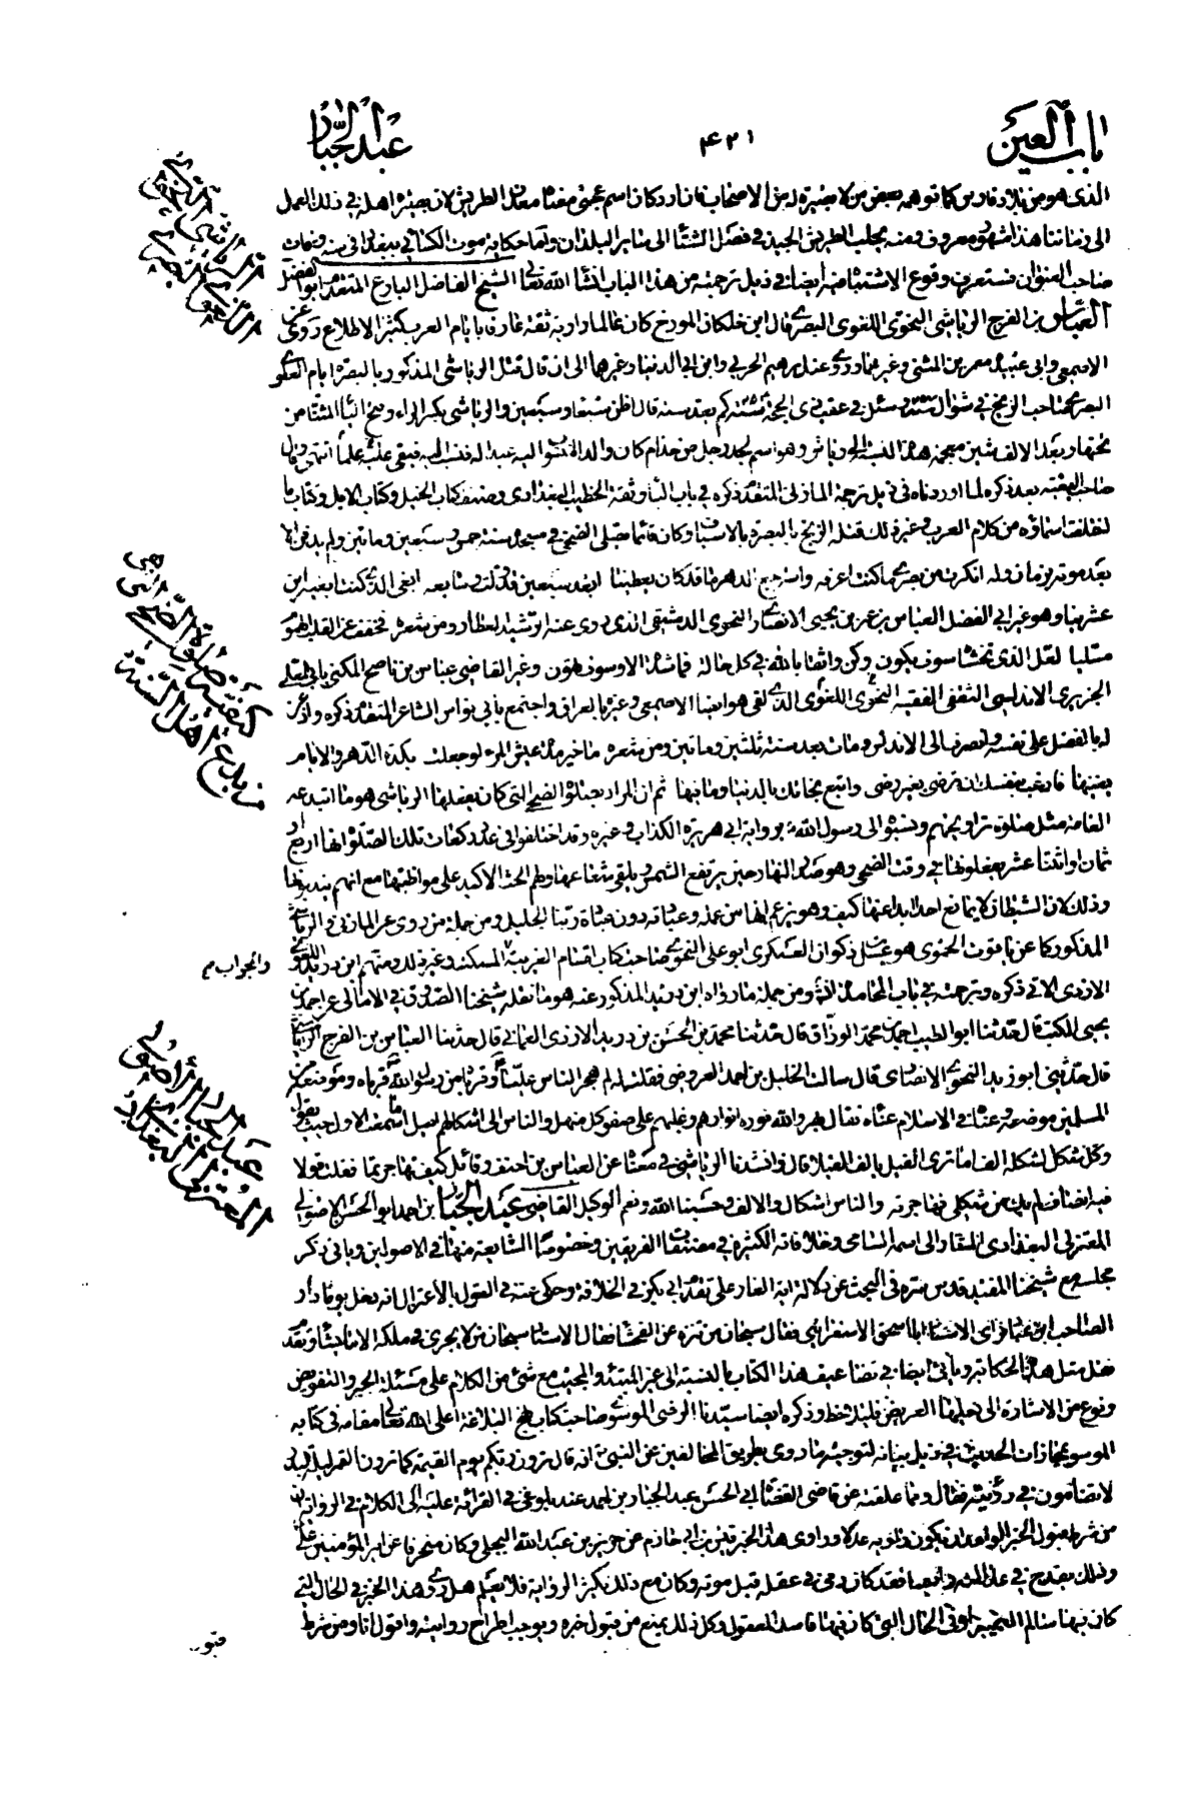 باب العين
٤٢١
عبد الجبار
الذى هو من بلاد فارس كما توهمه بعض من لا بصيرة له من الاصحاب فان اردكان اسم عجمى معناه معدن الطريش لان بصيرة اهله فى ذلك العمل
الى زماننا هذا مشهور معروف ومنه يجلب الطريش الجيد فى فصل الشتاء الى سائر البلدان واما حكاية موت الكسائى ببغداد فى سنة وفات
صاحب العنوان فستعرف وقوع الاشتباه فيه أيضا فى ذيل ترجمته من هذا الباب انشاء الله تعالى الشيخ الفاضل البارع المتقدم ابو الفضل
العباس بن الفرج الرياشى النحوى اللغوى البصرى قال ابن خلكان المورخ كان عالما راوية ثقة عارفا بايام العرب كثير الاطلاع روى عن
الاصمعى وابى عبيدة معمر بن المثنى وغيرهما وروى عنه ابرهيم الحربى وابن ابى الدنيا وغيرهما الى ان قال قتل الرياشى المذكور بالبصرة ايام العلوى
البصرى صاحب الزنج فى شوال سنة وسئل فى عقب ذى الحجة سنة كم يعد سنه قال اظن سبعا وسبعين والرياشى بكسر الراء وفتح الياء المثناة من
تحتها وبعد الالف شين معجمة هذه النسبة الى رياش وهو اسم لجد رجل من جذام كان والد المنسوب اليه عبدا له فنسب اليه فبقى عليه علما انتهى وقال
صاحب البغية بعد ذكره لما اوردناه فى ذيل ترجمة المازنى المتقدم ذكره فى باب الباء وثقه الخطيب البغدادى وصنف كتاب الخيل وكتاب الابل وكتاب ما
اختلفت اسماؤه من كلام العرب وغير ذلك قتله الزنج بالبصرة بالاسياف وكان قائما يصلى الضحى فى مسجده سنة سبع وخمسين ومأتين ولم يدفن الا
بعد موته بزمان وله انكرت من بصرى ما كنت اعرفه واسترجع الدهر ما قد كان يعطينا ابعد سبعين قد ولت وسابعة ابغى الذى كنت ابغيه ابن
عشرينا وهو غير ابى الفضل العباس بن عمر بن يحيى الانصارى النحوى الدمشقى الذى روى عنه الرشيد العطار ومن شعره تخفف عن القلب الهموم
مسليا لعل الذى تخشاه سوف يكون وكن واثقا بالله فى كل حالة فما شاءه الا وسوف يهون وغير القاضى عباس بن ناصح المكنى بابى المعلى
الجزيرى الاندلسى الثقفى الفقيه النحوى اللغوى الذى لقى هو ايضا الاصمعى وغيره بالعراق واجتمع بابى نواس الشاعر المتقدم ذكره واذعن
له بالفضل على نفسه وانصرف الى الاندلس ومات بعد سنة ثلثين ومأتين ومن شعره ما خير مدة عيش المرء لو جعلت كمدة الدهر والايام
يفنيها فارغب بنفسك ان ترضى بغير رضى وابتع نجاتك بالدنيا وما فيها ثم ان المراد بصلوة الضحى التى كان يصليها الرياشى هو ما ابتدعه
العامة مثل صلوة تراويحهم ونسبوه الى رسول الله برواية ابى هريرة الكذاب وغيره وقد اختلفوا فى عدد ركعات تلك الصلوة انها اربع او
ثمان او اثنتا عشر يصلونها فى وقت الضحى وهو صدر النهار حين يرتفع الشمس ويلقى شعاعها ولهم الحث الاكيد على مواظبتها مع انهم
وذلك لان الشيطان لا يمانع احدا بدا عنها كيف وهو يزعم انها من عمله وعباداته دون عبادة ربنا الجليل ومن جملة من روى عن المازنى والرياشى
المذكور كما عن ياقوت الحموى هو عسل بن ذكوان العسكرى ابو على النحوى صاحب كتاب اقسام العربية والجواب المسكت وغير ذلك ومنهم ابن دريد اللغوى
الازدى الاتى ذكره وترجمته فى باب المحامدة انشاء الله ومن جملة ما رواه ابن دريد المذكور عنه هو ما نقله شيخنا الصدوق فى الامالى عن احمد بن
يحيى المكتب قال حدثنا ابو الطيب احمد بن محمد الوراق قال حدثنا محمد بن الحسن بن دريد الازدى العمانى قال حدثنا العباس بن الفرج الرياشى
قال حدثنى ابو زيد النحوى الانصارى قال سالت الخليل بن احمد العروضى فقلت له لم هجر الناس عليا وقرباه من رسول الله قرباه وموضعه من
المسلمين موضعه وعناؤه فى الاسلام عناؤه فقال بهر والله نوره انوارهم وغلبهم على صفو كل منهل والناس الى اشكالهم اميل اما سمعت الاول حيث يقول
وكل شكل لشكله الف اما ترى الفيل يالف الفيلا قال وانشدنا الرياشى فى معناه عن العباس بن احنف وقائل كيف تهاجرتما فقلت قولا
فيه انصاف لم يك من شكلى فهاجرته والناس اشكال والاف وحسبنا الله ونعم الوكيل القاضى عبد الجبار بن احمد ابو الحسن الاصولى
المعتزلى البغدادى المشار الى اسمه السامى وخلافاته الكثيرة فى مصنفات الفريقين وخصوصا الشايعة منها فى الاصولين ويأتى ذكر
مجلسه مع شيخنا المفيد قدس سره فى البحث عن دلالة اية الغار على تقدم ابى بكر فى الخلافة وحكى عنه فى القول بالاعتزال انه دخل يوما دار
الصاحب ابن عباد فراى الاستاد ابا اسحق الاسفراينى فقال سبحان من تنزه عن الفحشاء فقال الاستاد سبحان من لا يجرى فى ملكه الا ما يشاء وتقدم
نقل مثل هذه الحكاية ويأتى ايضا فى تضاعيف هذا الكتاب بالنسبة الى غير المبتدء والمجيب مع شئ من الكلام على مسئلة الجبر والتفويض
ونوع من الاشارة الى دليلهما العريض فليلاحظ وذكره ايضا سيدنا الرضى الموسوى صاحب كتاب نهج البلاغة اعلى الله تعالى مقامه فى كتابه
الموسوم بمجازات الحديث فى ذيل بيانه لتوجيه ما روى بطريق المخالفين عن النبى انه قال ترون ربكم يوم القيمة كما ترون القمر ليلة البدر
لا تضامون فى رؤيته فقال ومما علقته عن قاضى القضاة ابى الحسن عبد الجبار بن احمد عند بلوغى فى القرائة عليه الى الكلام فى الرواية ان
من شرط قبول الخبر الواحد ان يكون راويه عدلا وراوى هذا الخبر قيس بن ابى حازم عن جرير بن عبد الله البجلى وكان منحرفا عن امير المؤمنين على
وذلك يقدح فى عدالته وايضا فقد كان رمى فى عقله قبل موته وكان مع ذلك يكثر الرواية فلا يعلم هل روى هذا الخبر فى الحال التى
كان فيها سالم التمييز او فى الحال التى كان فيها فاسد المعقول وكل ذلك يمنع من قبول خبره ويوجب اطراح روايته واقول انا ومن شرط
قبول
كيفية صلوة الضحى التى هى
من بدع اهل السنة
والجواب
عبد الجبار الاصولى
المعتزلى البغدادى